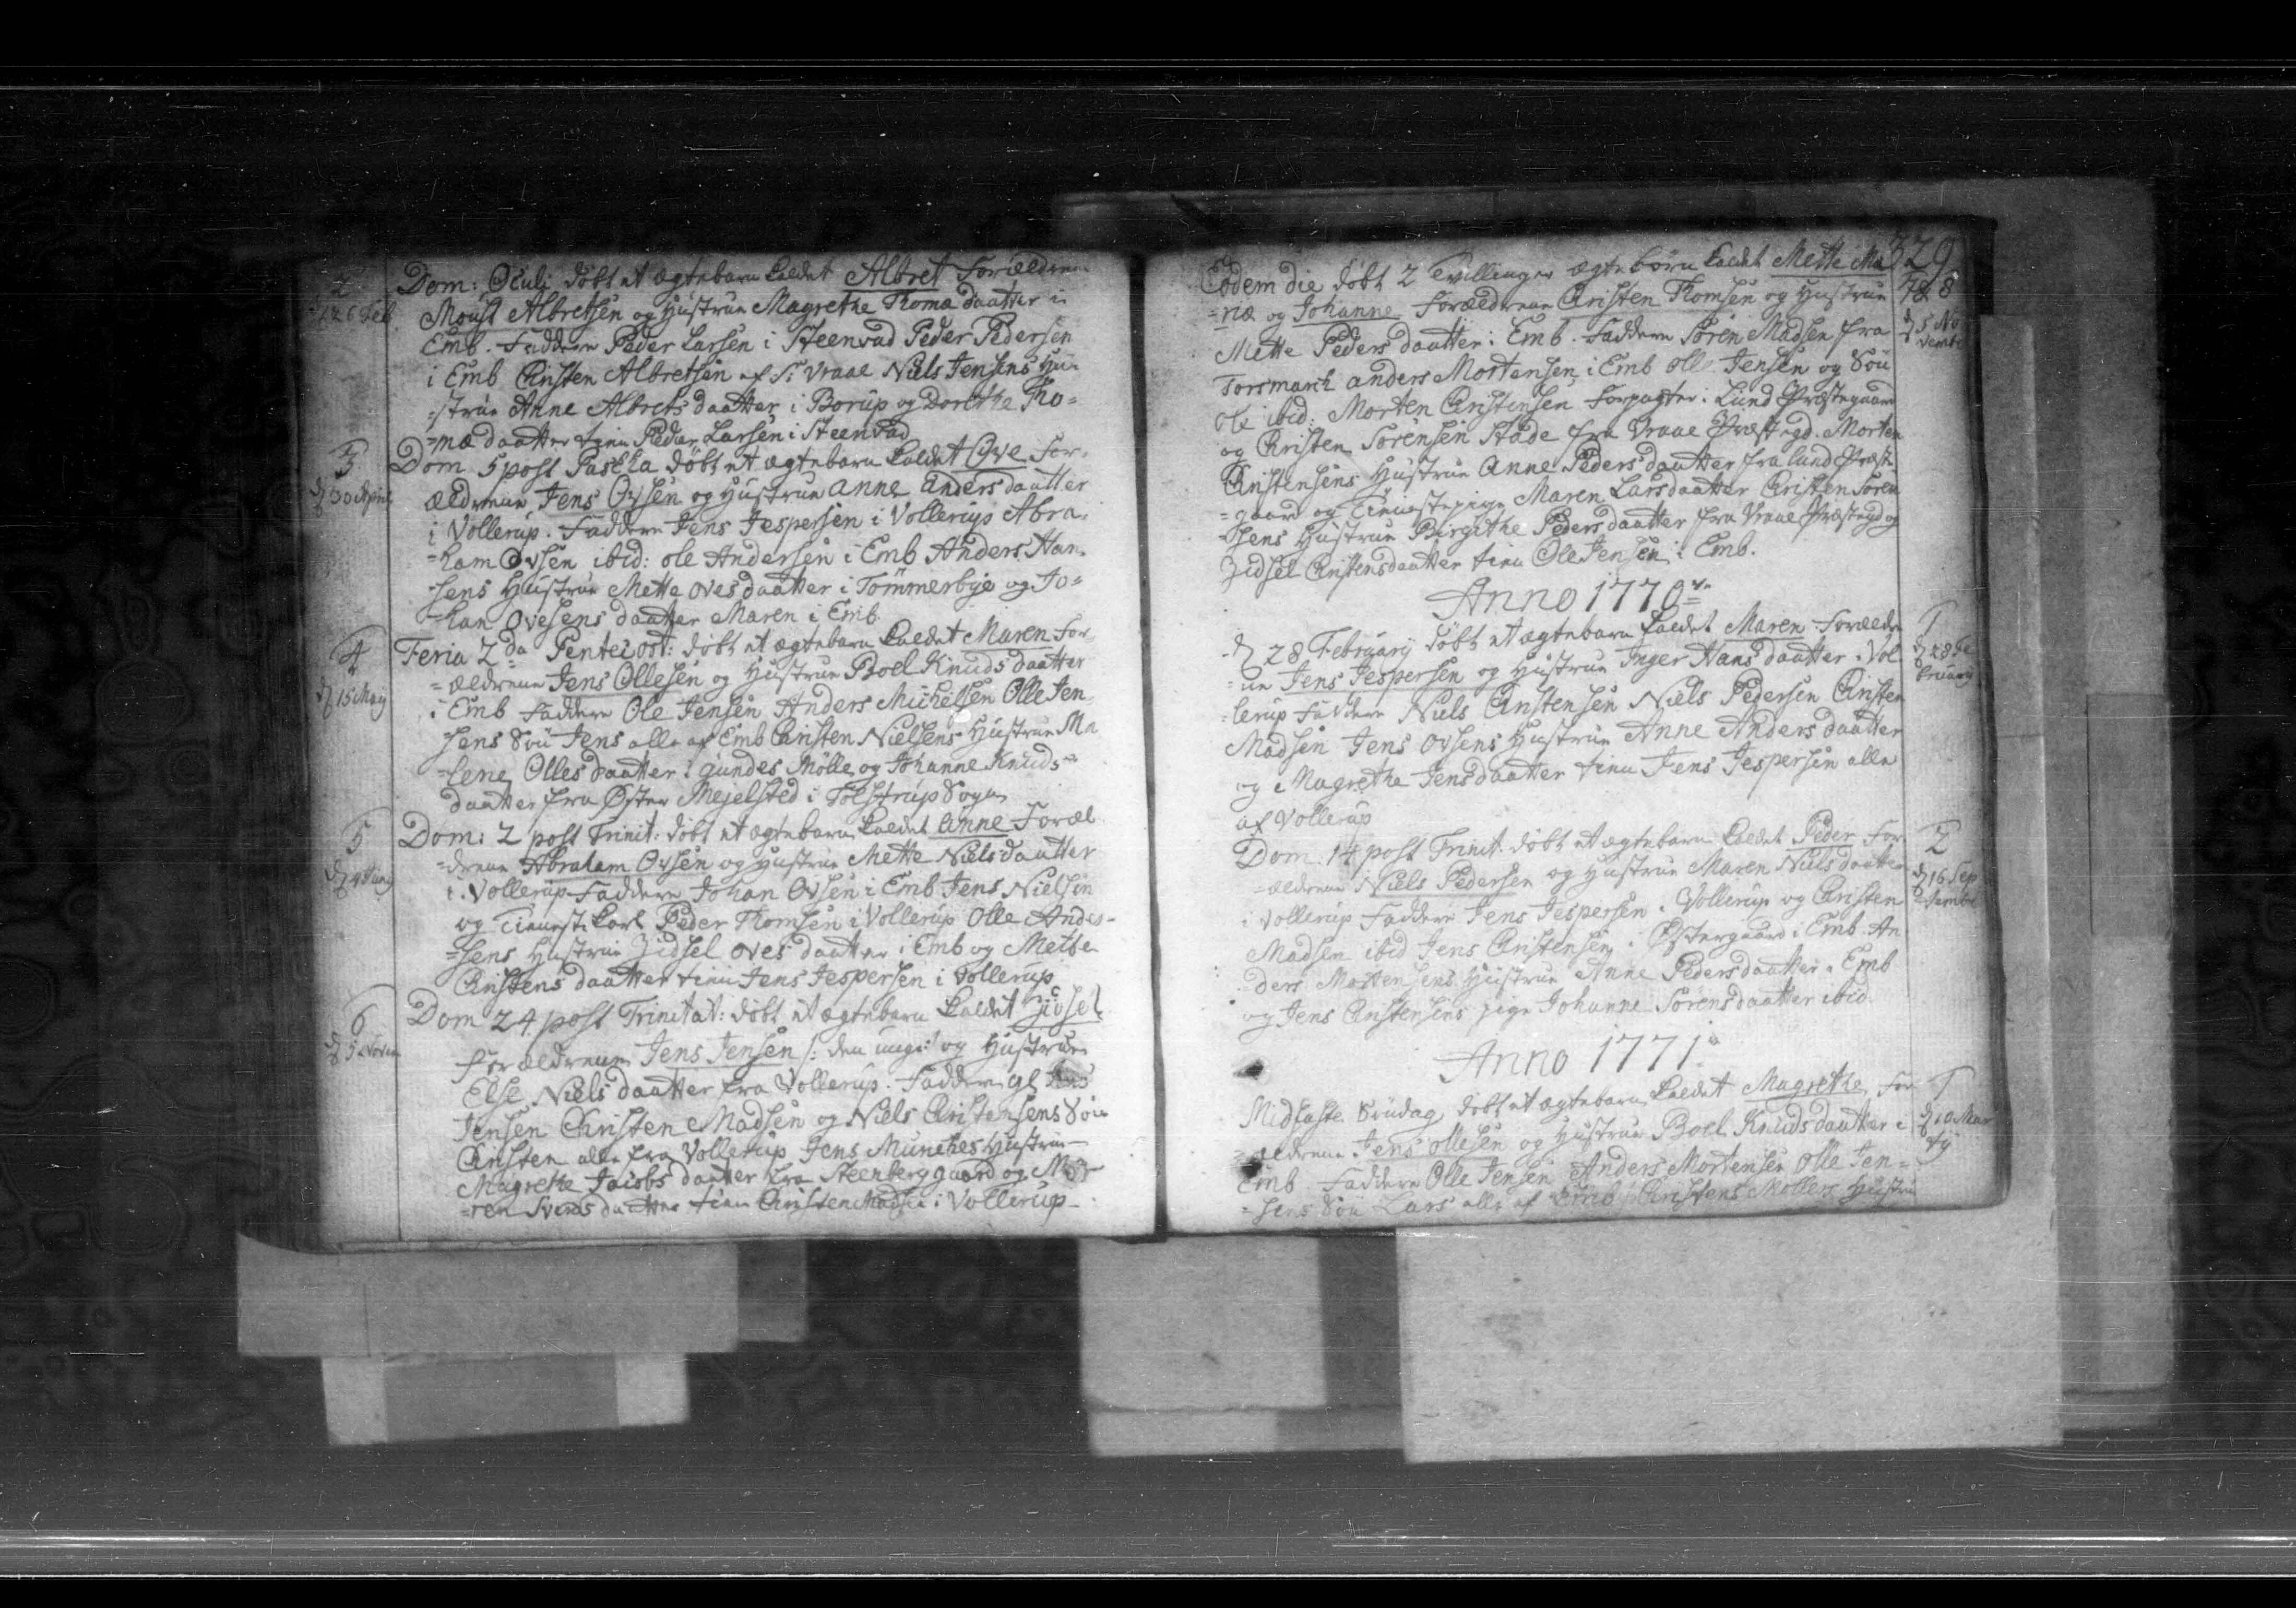 2
26 Feb.
Dom: Oculi döbt et ægtebarn kaldet Albret Forældrene
Moust Albretsen og Hustrue Magrethe Thomædaatter i
Emb. Faddere Peder Larsen i Steenvad Peder Pedersen
i Emb Christen Albretsen af Vraae Niels Jensens Hu-
=strue Anne Albrets daatter i Borup og Dorethe Tho=
=mæ daatter tien Peder Larsen i Steenvad
3
d 30 April
Dom 5 post Pascha döbt et ægtebarn kaldet Ove For-
ældrene Jens Ovsen og Hustrue Anne Anders daatter
i Vollerup. Faddere Jens Jespersen i Vollerup Abra-
=ham Ovsen ibid: ole Andersen i Emb Anders Han-
=sens Hustrue Mette oves daatter i Tömmerbye og Jo=
=han Ovesens daatter Maren i Emb.
4
d 15 Maij
Feria 2da Pentecost: döbt et ægtebarn kaldet Maren For-
=ældrene Jens Ollesen og Hustrue Boel Knuds daatter
i Emb Faddere Ole Jensen Anders Michelsen Olle Jen-
=sens Sön Jens alle af Emb Christen Nielsens Hustrue Ma
=lene Olles daatter i gundes Mölle og Johanne Knuds=
daatter fra Öster Mejelsted i Tolstrup Sogn
5
d 4 Junij
Dom: 2 post Trinit: döbt et ægtebarn kaldet Anne Foræl
=drene Abraham Ovsen og Hustrue Mette Niels daatter
i Vollerup Faddere Johan Ovsen i Emb Jens Nielsen
og Tieneste Karl Peder Thomsen i Vollerup Olle Ander-
=sens Hustrue Zidsel oves daatter i Emb og Mette
Christens daatter tien Jens Jespersen i Vollerup
6
d 5 Novem
Dom 24 post Trinitat: döbt et ægtebarn kaldet
forældrene Jens Jensen /: den unge :/ og Hustrue
Else Niels daatter fra Vollerup. Faddere gl Jens
Jensen Christen Madsen og Niels Christensens Sön
Christen alle fra Vollerup Jens Munches Hustrue
Magrethe Jacobs daatter fra Steenberg gaard og Ma
=ren Svends daatter tien Christen Madsen i Vollerup
329
Eodem die döbt 2 Tvillinger ægtebörn kaldet Mette Ma
=riæ og Johanne Forældrene Christen Thomsen og Hustrue
Mette Peders daatter i Emb. Faddere Sören Madsen fra
Torsmark anders Mortensen i Emb olle Jensen og Sön
ole ibid: Morten Christensen Forpagter i Lund Præstegaard
og Christen Sörensen Stade fra Vraae Præstegd. Morten
Christensens Hustrue Anne Peders daatter fra Lund Præste-
=gaard og Tienestepige Maren Larsdaatter Christen Sören
=sens Hustrue Birgithe Pedersdaatter fra Vraae Præstegd og
Zidsel Christensdaatter tien Ole Jensen i Emb.
7 & 8
d 5 No
vembr
Anno 1770
d 28 Februarij döbt et ægtebarn kaldet Maren Forældre
=ne Jens Jespersen og Hustrue Inger Hans daatter i Vol
=lerup Faddere Niels Christensen Niels Pedersen Christen
Madsen Jens Ovsens Hustrue Anne Anders daatter
og Magrethe Jensdaatter tien Jens Jespersen alle
af Vollerup
1
d 28 Fe
bruarij
Dom 14 post Trinit. döbt et ægtebarn kaldet Peder For
=ældrene Niels Pedersen og Hustrue Maren Niels daatter
i Vollerup Faddere Jens Jespersen i Vollerup og Christen
Madsen ibid Jens Christensen i Östergaard i Emb. An
ders Mortensens Hustrue Anne Pedersdaatter i Emb
og Jens Christensens pige Johanne Sörensdaatter ibid
2
d 16 Sep
tembr
Anno 1771
Midfaste Söndag döbt et ægtebarn kaldet Magrethe For
=ældrene Jens ollesen og Hustrue Boel Knuds daatter i
Emb. Faddere Olle Jensen Anders Mortensen Olle Jen=
=sens Sön Lars alle af Emb Christens Möllers Hustru
1
d 10 Mar
tij